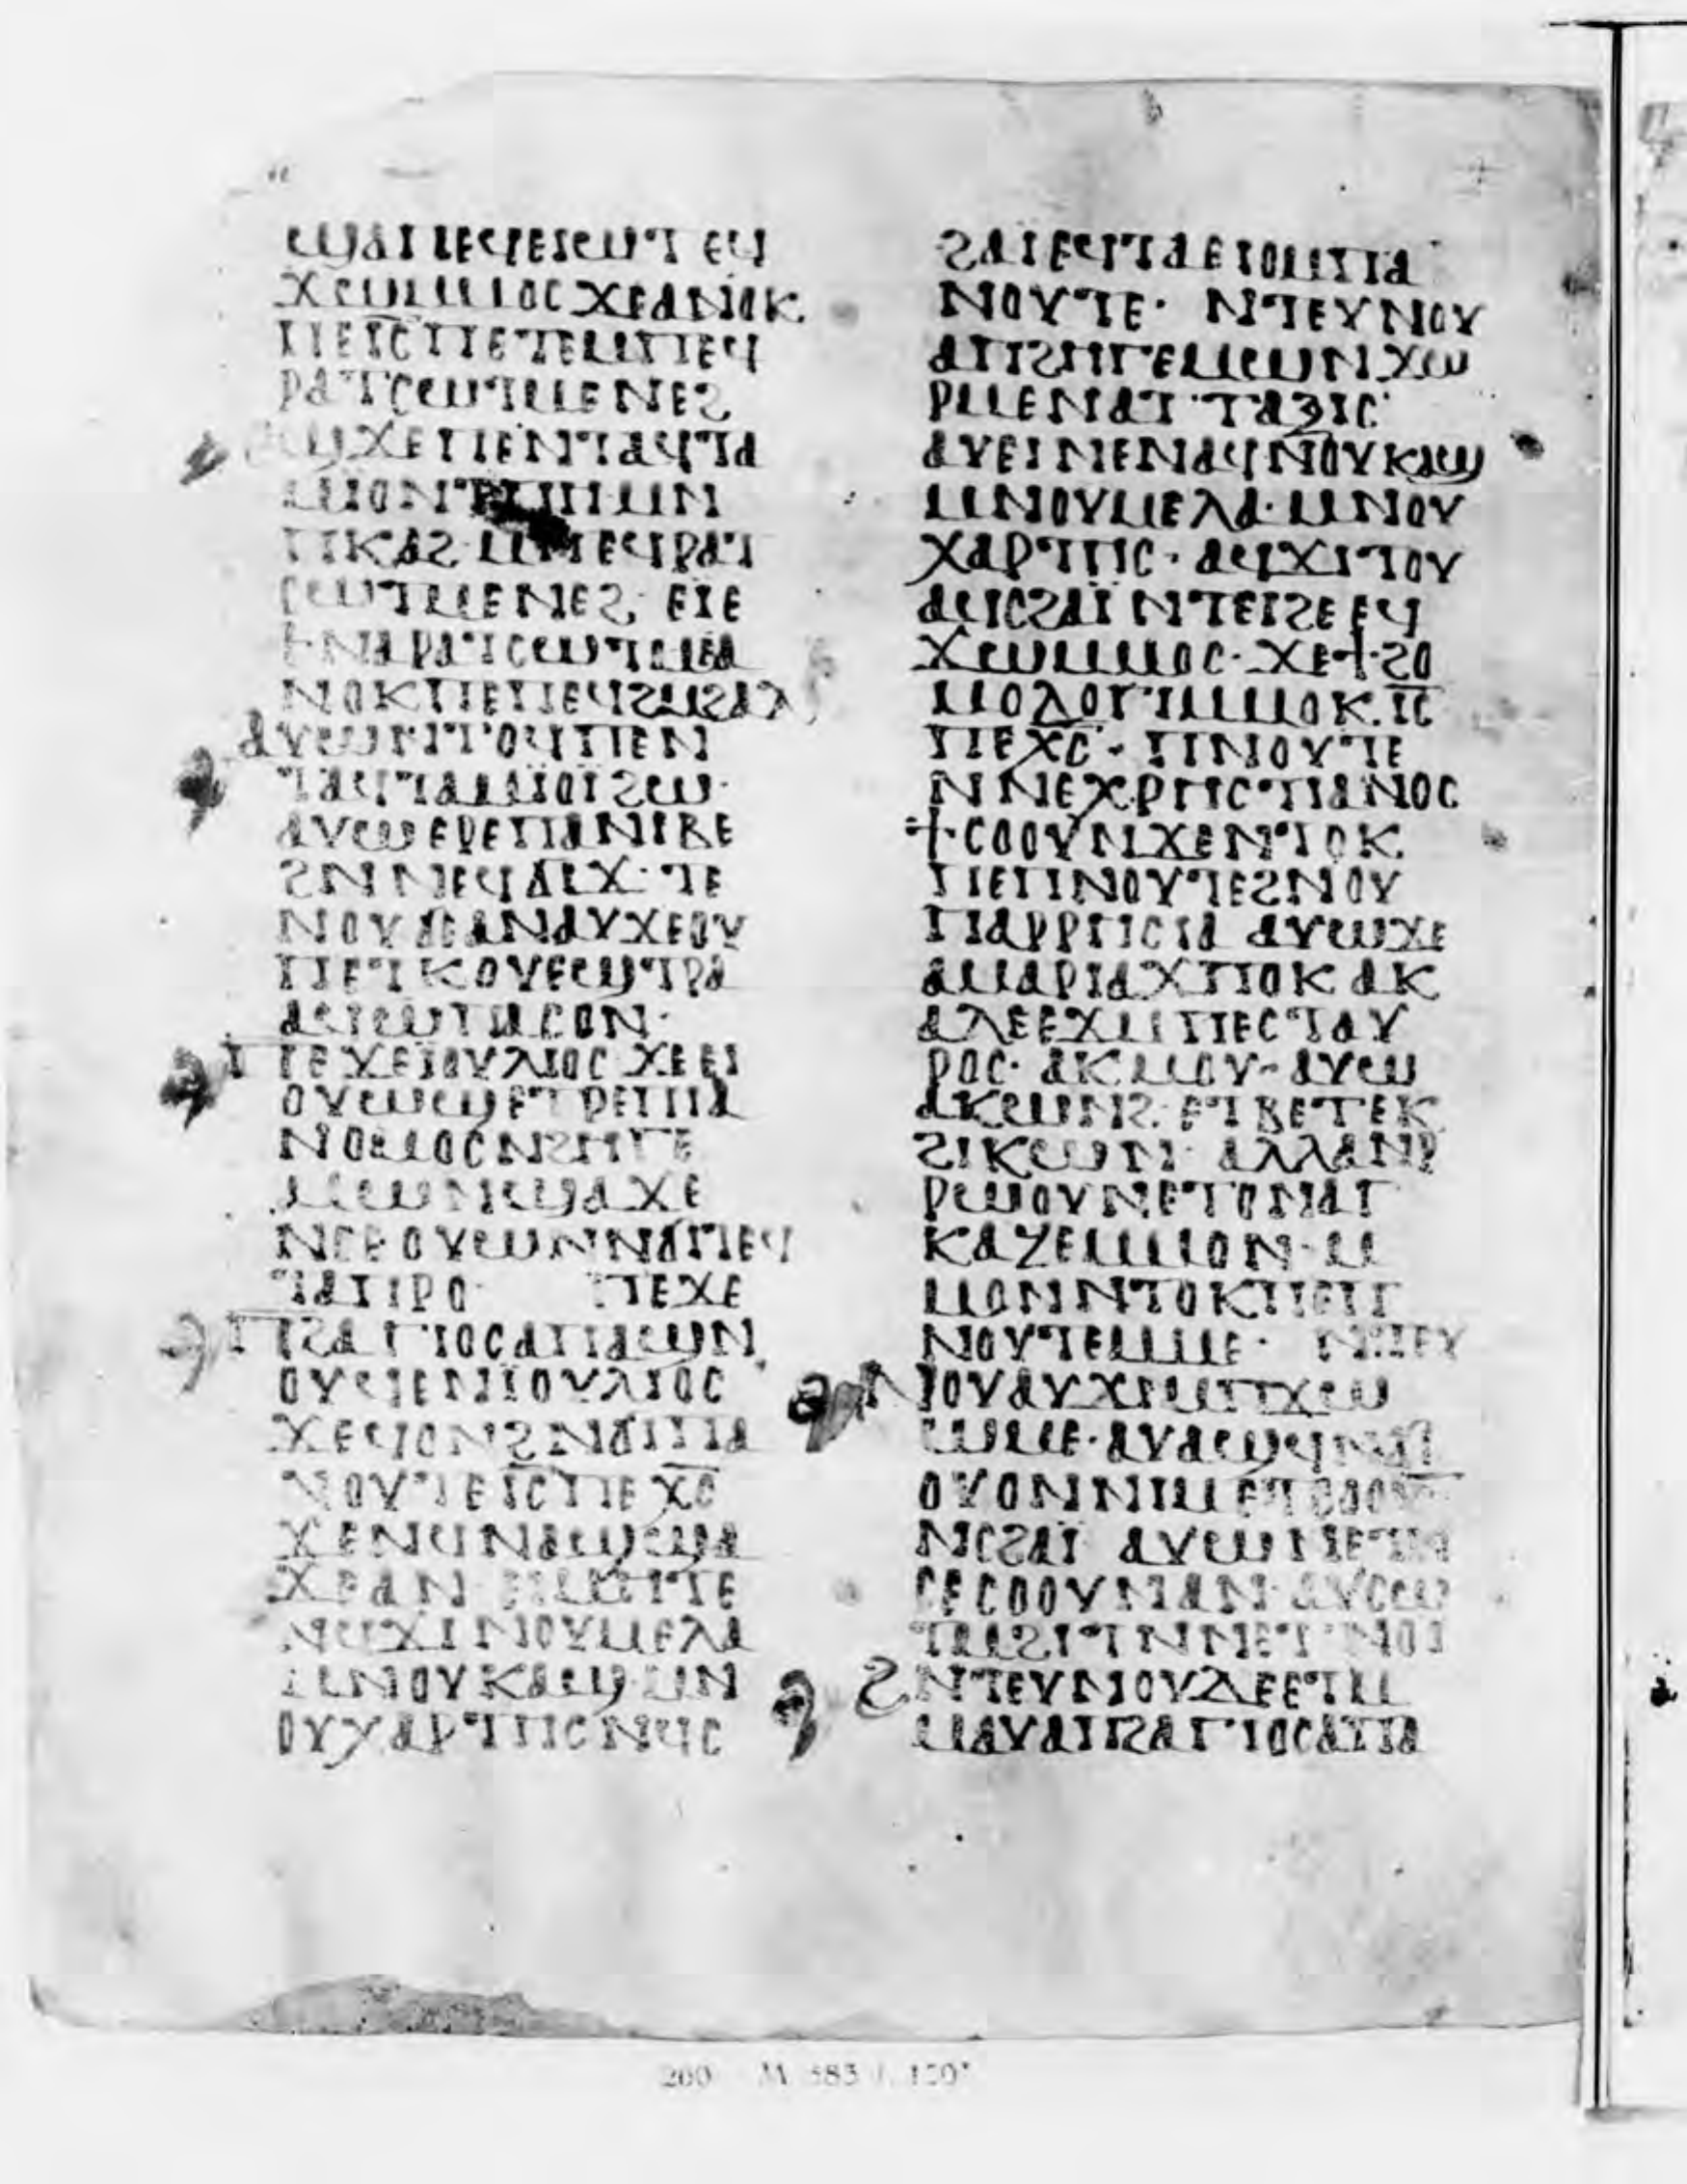 ϣⲁⲓ ⲙⲉϥⲉⲓⲱⲧ ⲉϥ
ϫⲱ ⲙⲙⲟⲥ ϫⲉ ⲁⲛⲟⲕ
ⲡⲉ ⲓ̅ⲥ̅ ⲡⲉⲧⲉⲙⲡⲉϥ
ⲣⲁⲧⲥⲱⲧⲙ ⲉⲛⲉϩ
ϫⲉ ⲡⲉⲛⲧⲁϥⲧⲁ
ⲙⲓⲟⲛ ⲧⲡⲏ ⲙⲛ
ⲡⲕⲁϩ ⲙⲡⲉϥⲣⲁⲧ
ⲥⲱⲧⲙ ⲉⲛⲉϩ· ⲉⲓⲉ
ϯⲛⲁⲣⲁⲧⲥⲱⲧⲙ ⲁ
ⲛⲟⲕ ⲡⲉⲡⲉϥϩⲙϩⲁⲗ
ⲁⲩⲱ ⲛⲧⲟϥ ⲡⲉⲛ
ⲧⲁϥⲧⲁⲙⲓⲟⲓ ϩⲱ·
ⲁⲩⲱ ⲉⲣⲉ ⲡⲁⲛⲓⲃⲉ
ϩⲛ ⲛⲉϥϭⲓϫ· ⲧⲉ
ⲛⲟⲩ ϭⲉ ⲁⲛⲁⲩ ϫⲉ ⲟⲩ
ⲡⲉⲧⲕⲟⲩⲉϣⲧⲣⲁ
ⲁϥ ⲱ ⲡⲁⲥⲟⲛ·
ⲡⲉϫⲉ ⲓⲟⲩⲗⲓⲟⲥ ϫⲉ ⲉⲓ
ⲟⲩⲱϣ ⲉⲧⲣⲉ ⲡⲁ
ⲛⲟⲙⲟⲥ ⲛϩⲏⲅⲉ
ⲙⲱⲛ ϣⲁϫⲉ
ⲛϥⲟⲩⲱⲛ ⲛⲁⲓ ⲡⲉϥ
ⲧⲁⲡⲣⲟ· ⲡⲉϫⲉ
ⲡϩⲁⲅⲓⲟⲥ ⲁⲡⲁ
ⲟⲩϥⲉⲛ ⲓⲟⲩⲗⲓⲟⲥ
ϫⲉ ϥⲟⲛϩ ⲛϭⲓ ⲡⲁ
ⲛⲟⲩⲧⲉ ⲓ̅ⲥ̅ ⲡⲉⲭ̅ⲥ̅
ϫⲉ ⲛϥⲛⲁϣ ϣⲁ
ϫⲉ ⲁⲛ ⲉⲓⲙⲏⲧⲉⲓ
ⲛϥϫⲓ ⲛⲟⲩⲙⲉⲗⲁ
ⲙⲛⲟⲩⲕⲁϣ ⲙⲛ
ⲟⲩⲭⲁⲣⲧⲏⲥ ⲛϥⲥ
ϩⲁⲓ ⲉϥⲧⲁⲉⲓⲟ ⲙⲡⲁ
ⲛⲟⲩⲧⲉ· ⲛⲧⲉⲩⲛⲟⲩ
ⲁⲡϩⲏⲅⲉⲙⲱⲛ ϫⲱ
ⲣⲙ ⲉⲛⲁⲧⲧⲁⲝⲓⲥ
ⲁⲩⲉⲓⲛⲉ ⲛⲁϥ ⲛⲟⲩⲕⲁϣ
ⲙⲛⲟⲩⲙⲉⲗⲁ· ⲙⲛⲟⲩ
ⲭⲁⲣⲧⲏⲥ· ⲁϥϫⲓⲧⲟⲩ
ⲁϥⲥϩⲁⲓ ⲛⲧⲉⲓϩⲉ ⲉϥ
ϫⲱ ⲙⲙⲟⲥ· ϫⲉ ϯϩⲟ
ⲙⲟⲗⲟⲅⲓ ⲙⲙⲟⲕ· ⲓ̅ⲥ̅
ⲡⲉⲭ̅ⲥ̅· ⲡⲛⲟⲩⲧⲉ
ⲛⲛⲉⲭⲣⲏⲥⲧⲓⲁⲛⲟⲥ
ϯⲥⲟⲟⲩⲛ ϫⲉ ⲛⲧⲟⲕ
ⲡⲉ ⲡⲛⲟⲩⲧⲉ ϩⲛ ⲟⲩ
ⲡⲁⲣⲣⲏⲥⲓⲁ ⲁⲩⲱ ϫⲉ
ⲁⲙⲁⲣⲓⲁ ϫⲡⲟⲕ ⲁⲕ
ⲁⲗⲉ ⲉϫⲙ ⲡⲉⲥⲧⲁⲩ
ⲣⲟⲥ· ⲁⲕⲙⲟⲩ· ⲁⲩⲱ
ⲁⲕⲱⲛϩ· ⲉⲧⲃⲉ ⲧⲉⲕ
ϩⲓⲕⲱⲛ· ⲁⲗⲗⲁ ⲛⲣ
ⲣⲱⲟⲩ ⲛⲉⲧⲟⲛⲁⲅ
ⲕⲁⲍⲉ ⲙⲙⲟⲛ· ⲙ
ⲙⲟⲛ ⲛⲧⲟⲕ ⲡⲉ ⲡ
ⲛⲟⲩⲧⲉ ⲙⲙⲉ· ⲛⲧⲉⲩ
ⲛⲟⲩ ⲁⲩϫⲓ ⲙⲡϫⲱ
ⲱⲙⲉ· ⲁⲩⲁϣϥ
ⲟⲩⲟⲛ ⲛⲓⲙ ⲉⲧⲥⲟⲟⲩ
ⲛ ⲥϩⲁⲓ ⲁⲩⲱ ⲛⲉⲧⲛ
ⲥⲉⲥⲟⲟⲩⲛ ⲁⲛ· ⲁⲩⲥⲱ
ⲧⲙ ϩⲓⲧⲛ ⲛⲉⲧ
ϩⲛ ⲧⲉⲩⲛⲟⲩ ⲇⲉ ⲉⲧⲙ
ⲙⲁⲩ ⲁⲡϩⲁⲅⲓⲟⲥ ⲁⲡⲁ